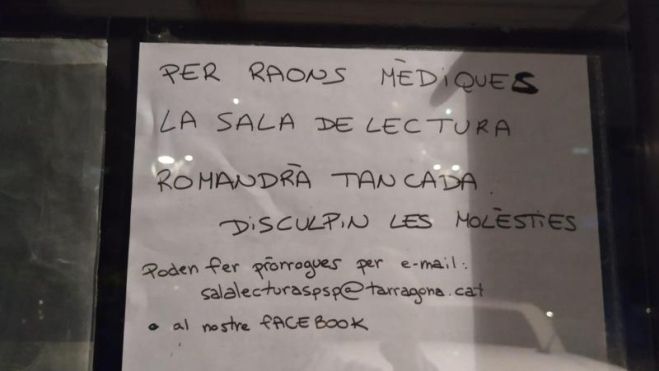 PER RAONS MÈDIQUES
LA SALA DE LECTURA
ROMANDRÀ TANCADA.
DISCULPIN LES MOLÈSTIES
Poden fer pròrrogues per e-mail:
salalecturaspsp@tarragona.cat
o al nostre FACEBOOK